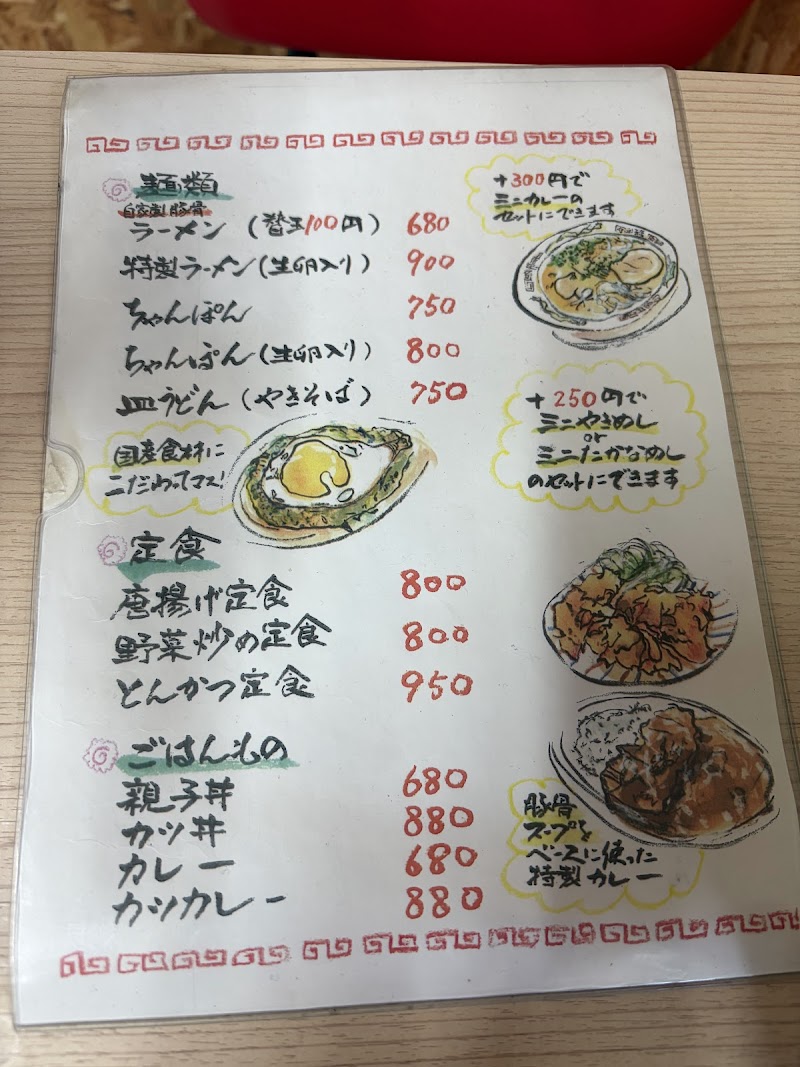 麺類
自家製豚骨
ラーメン (替玉100円) 680
特製ラーメン(生卵入り) 900
ちゃんぽん 750
ちゃんぽん(生卵入り) 800
皿うどん(やきそば) 750
+300円で
ミニカレーの
セットにできます
+250円で
ミニやきめし
or
ミニたかなめし
のセットにできます
国産食材に
こだわってマス!
定食
唐揚げ定食 800
野菜炒め定食 800
とんかつ定食 950
ごはんもの
親子丼 680
カツ丼 880
カレー 680
カツカレー 880
豚骨
スープを
ベースに使った
特製カレー